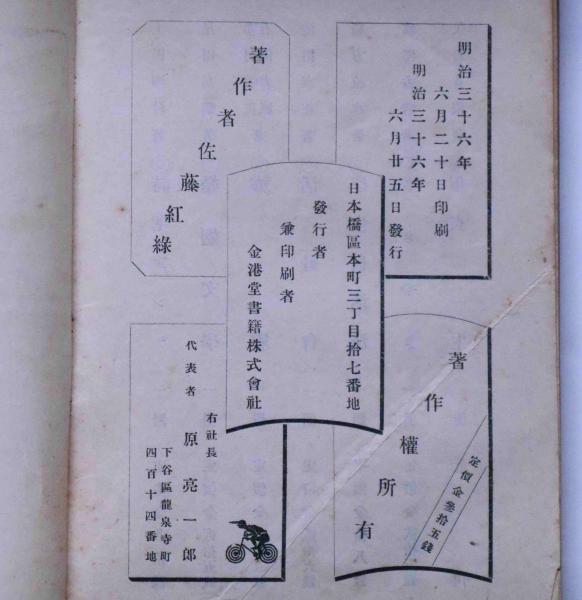 明治三十六年
六月二十日印刷
明治三十六年
六月廿五日發行
著作者佐藤紅綠
日本橋區本町三丁目拾七番地
發行者
兼印刷者
金港堂書籍株式會社
著作權所有
定價金參拾五錢
右社長
代表者
原亮一郎
下谷區龍泉寺町
四百十四番地